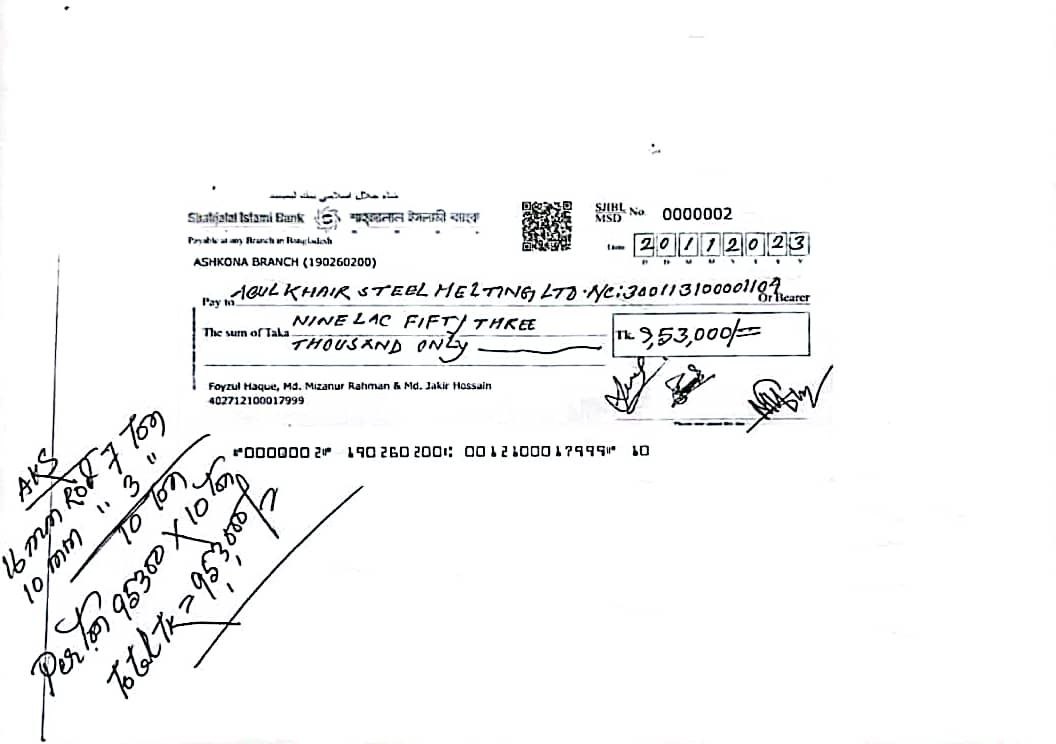 شاه جلال اسلامي بنك لميتد
Shahjalal Islami Bank শাহ্জালাল ইসলামী ব্যাংক
Payable at any Branch in Bangladesh
ASHKONA BRANCH (190260200)
SJIBL
MSD No. 0000002
Date 20112023
D D M M Y Y Y Y
Pay to ABUL KHAIR STEEL MELTING LTD. A/C: 300113100001109 Or Bearer
The sum of Taka NINE LAC FIFTY THREE
THOUSAND ONLY
Tk. 9,53,000/=
Foyzul Haque, Md. Mizanur Rahman & Md. Jakir Hossain
402712100017999
⑈0000002⑈ 190260200⑆ 0012100017999⑈ 10
AKS
16 mm Rod 7 Ton
10 mm " 3 "
10 Ton
Per Ton 95300 X 10 Ton
Total Tk = 9,53,000/-